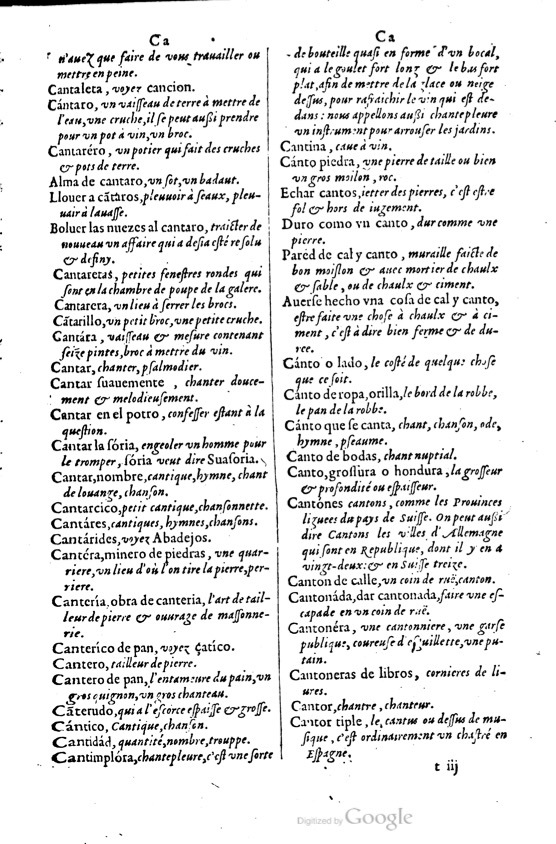 Ca
n'auez que faire de vous trauailler ou
mettre en peine.
Cantaleta, voyez cancion.
Cántaro, vn vaisseau de terre à mettre de
l'eau, vne cruche, il se peut aussi prendre
pour vn pot à vin, vn broc.
Cantaréro, vn potier qui fait des cruches
& pots de terre.
Alma de cantaro, vn sot, vn badaut.
Llouer a cãtaros, pleuuoir à seaux, pleu-
uair à lauasse.
Boluer las nuezes al cantaro, traicter de
nouueau vn affaire qui a desia esté resolu
& definy.
Cantaretas, petites fenestres rondes qui
sont en la chambre de poupe de la galere.
Cantarera, vn lieu à serrer les brocs.
Cãtarillo, vn petit broc, vne petite cruche.
Cantára, vaisseau & mesure contenant
seize pintes, broc à mettre du vin.
Cantar, chanter, psalmodier.
Cantar suauemente, chanter douce-
ment & melodieusement.
Cantar en el potro, confesser estant à la
question.
Cantar la sória, engeoler vn homme pour
le tromper, sória veut dire Suasoria.
Cantar, nombre, cantique, hymne, chant
de louange, chanson.
Cantarcico, petit cantique, chansonnette.
Cantáres, cantiques, hymnes, chansons.
Cantárides, voyez Abadejos.
Cantéra, minero de piedras, vne quar-
riere, vn lieu d'où l'on tire la pierre, per-
riere.
Cantería, obra de canteria, l'art de tail-
leur de pierre & ouurage de massonne-
rie.
Canterico de pan, voyez çatico.
Cantero, tailleur de pierre.
Cantero de pan, l'entameure du pain, vn
gros quignon, vn gros chanteau.
Cãterudo, qui a l'escorce espaisse & grosse.
Cántico, Cantique, chanson.
Cantidád, quantité, nombre, trouppe.
Cantimplóra, chantepleure, c'est vne sorte
Ca
de bouteille quasi en forme d'vn bocal,
qui a le goulet fort long & le bas fort
plat, afin de mettre de la glace ou neige
dessus, pour rafraichir le vin qui est de-
dans: nous appellons aussi chantepleure
vn instrument pour arrouser les jardins.
Cantina, caue à vin.
Cánto piedra, vne pierre de taille ou bien
vn gros moilon, roc.
Echar cantos, ietter des pierres, c'est estre
fol & hors de iugement.
Duro como vn canto, dur comme vne
pierre.
Pared de cal y canto, muraille faicte de
bon moislon & auec mortier de chaulx
& sable, ou de chaulx & ciment.
Auerse hecho vna cosa de cal y canto,
estre faite vne chose à chaulx & à ci-
ment, c'est à dire bien ferme & de du-
ree.
Cánto o lado, le costé de quelque chose
que ce soit.
Cánto de ropa, orilla, le bord de la robbe,
le pan de la robbe.
Cánto que se canta, chant, chanson, ode,
hymne, pseaume.
Canto de bodas, chant nuptial.
Canto, grossura o hondura, la grosseur
& profondité ou espaisseur.
Cantónes cantons, comme les Prouinces
liguees du pays de Suisse. On peut aussi
dire Cantons les villes d'Allemagne
qui sont en Republique, dont il y en a
vingt-deux: & en Suisse treize.
Canton de calle, vn coin de ruë, canton.
Cantonáda, dar cantonada, faire vne es-
capade en vn coin de ruë.
Cantonéra, vne cantonniere, vne garse
publique, coureuse d'esguillette, vne pu-
tain.
Cantoneras de libros, cornieres de li-
ures.
Cantor, chantre, chanteur.
Cantor tiple, le cantus ou dessus de mu-
sique, c'est ordinairement vn chastré en
Espagne.
t iij
Digitized by Google